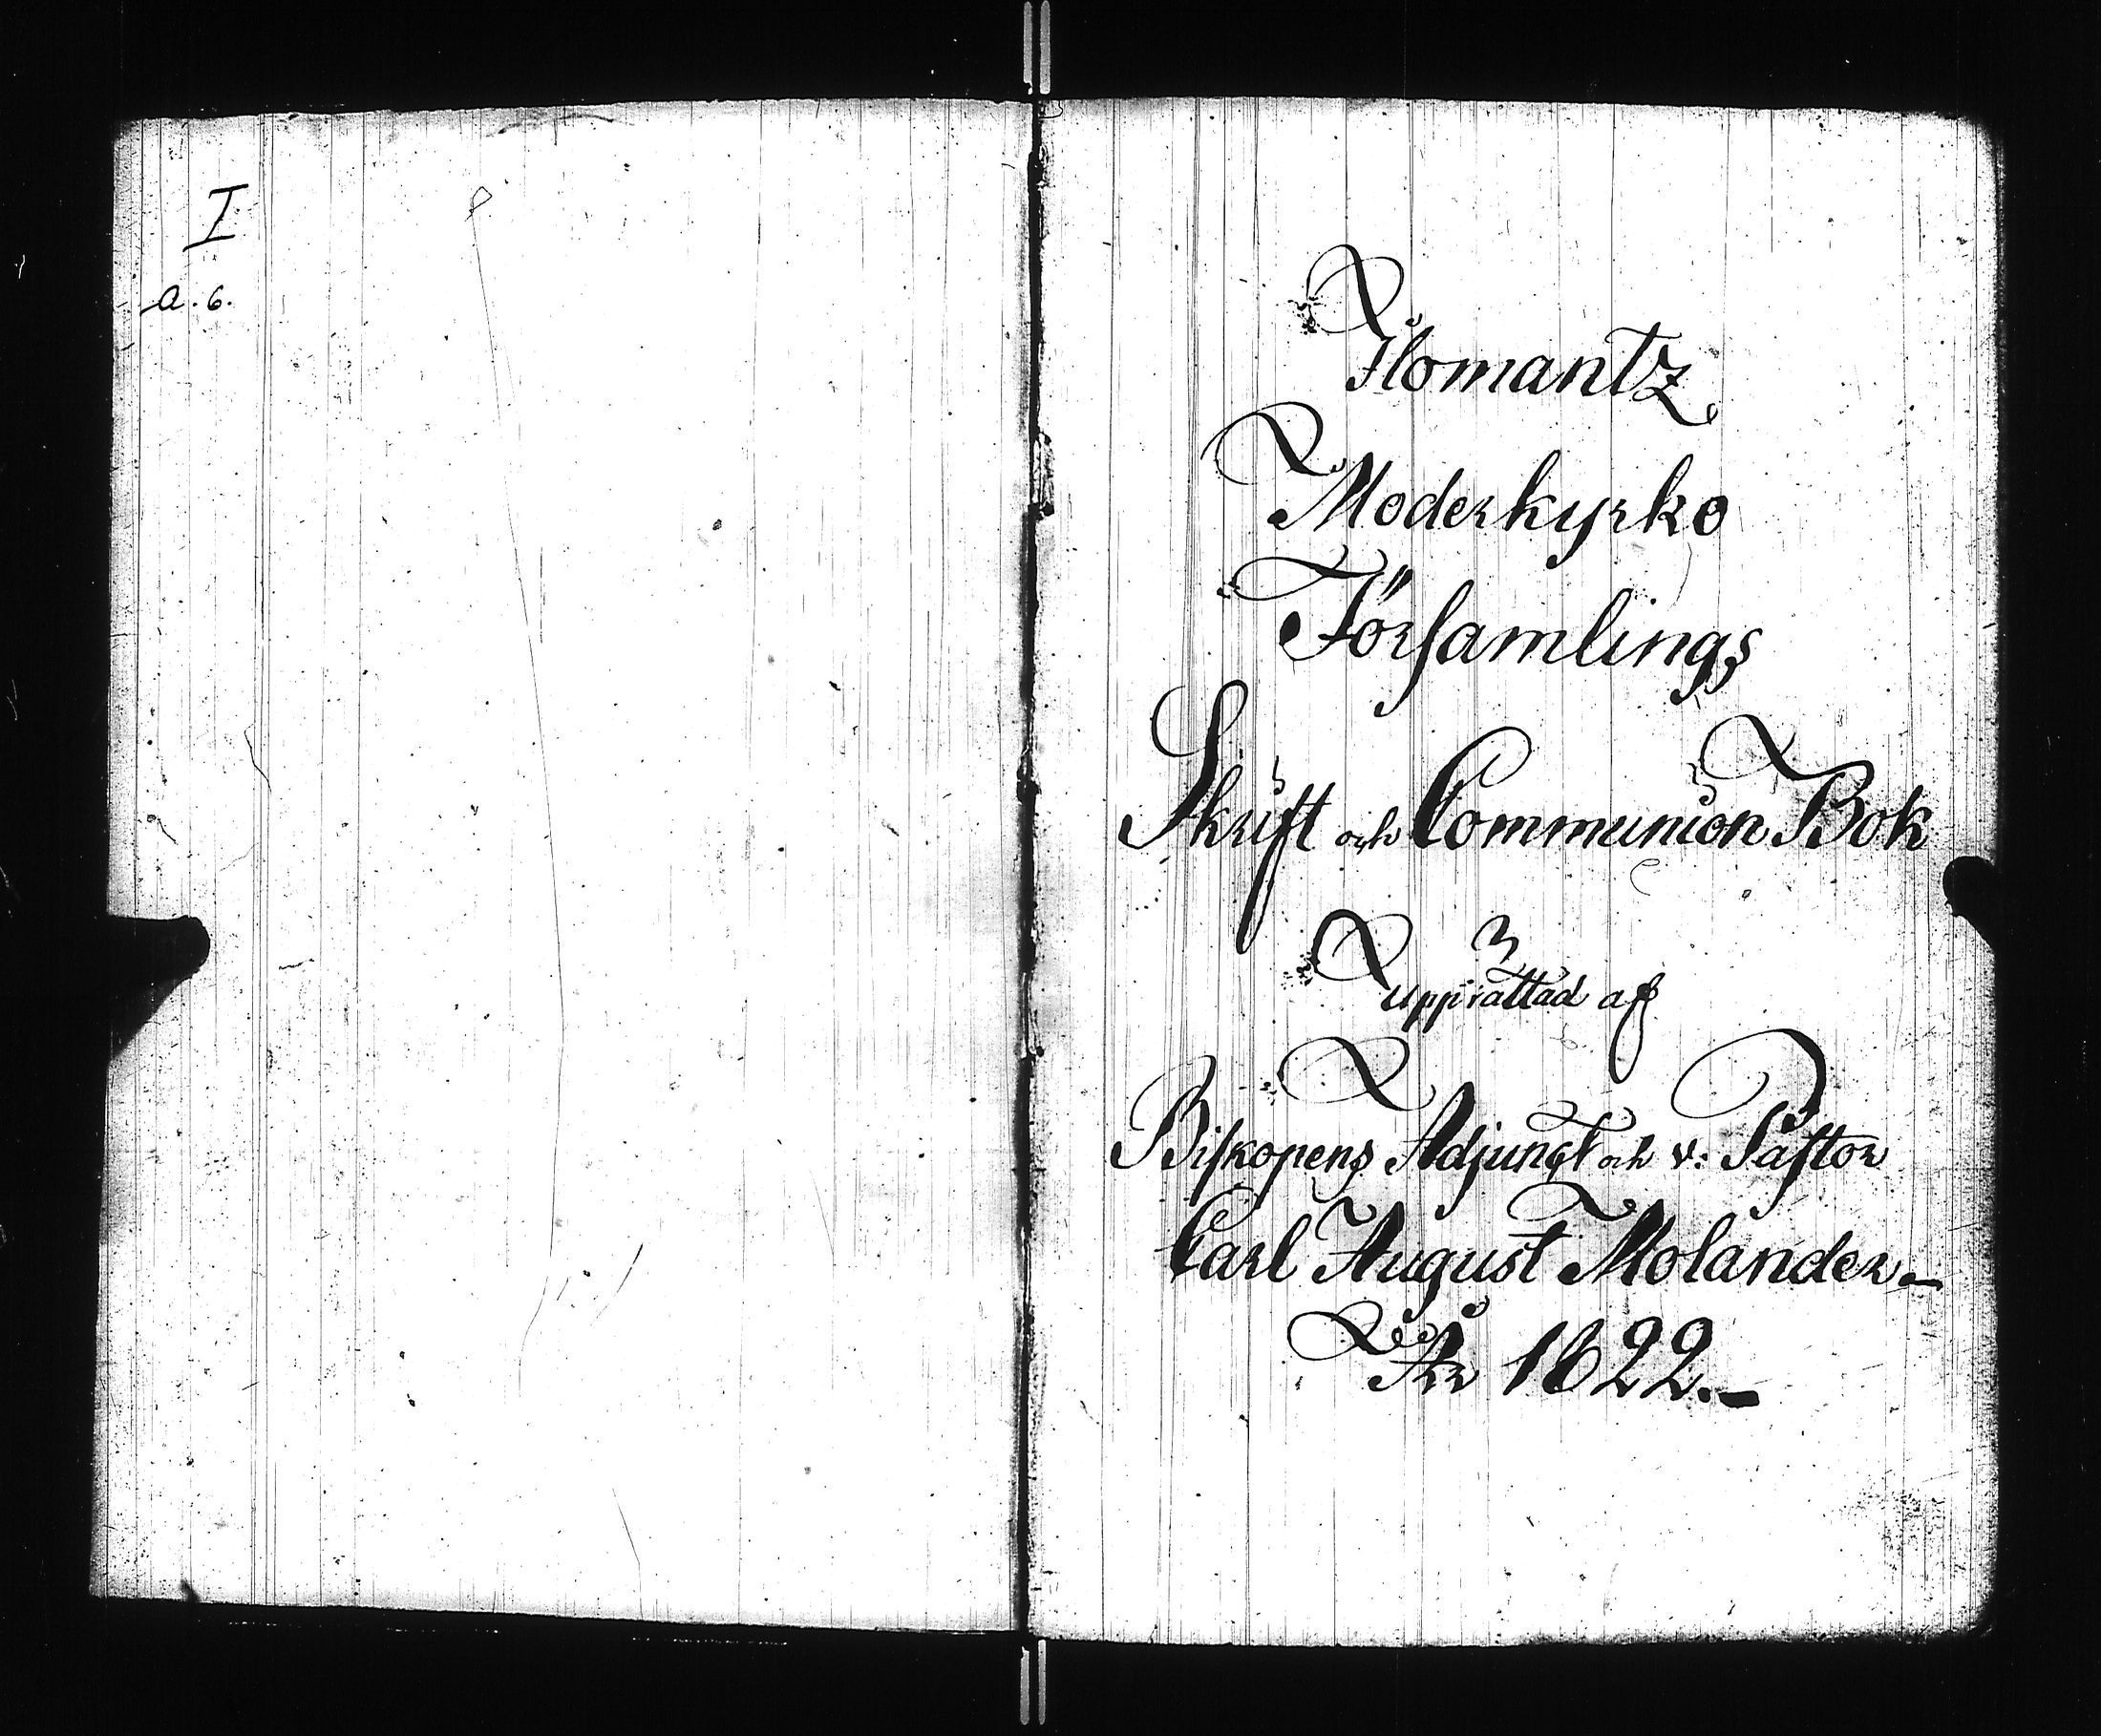 I
a. 6.
Ilomantz
Moderkyrko
Församlings
Skrift och Communion Bok
upprättad af
Biskopens Adjungt och v: Pastor
Carl August Molander.
År 1822.